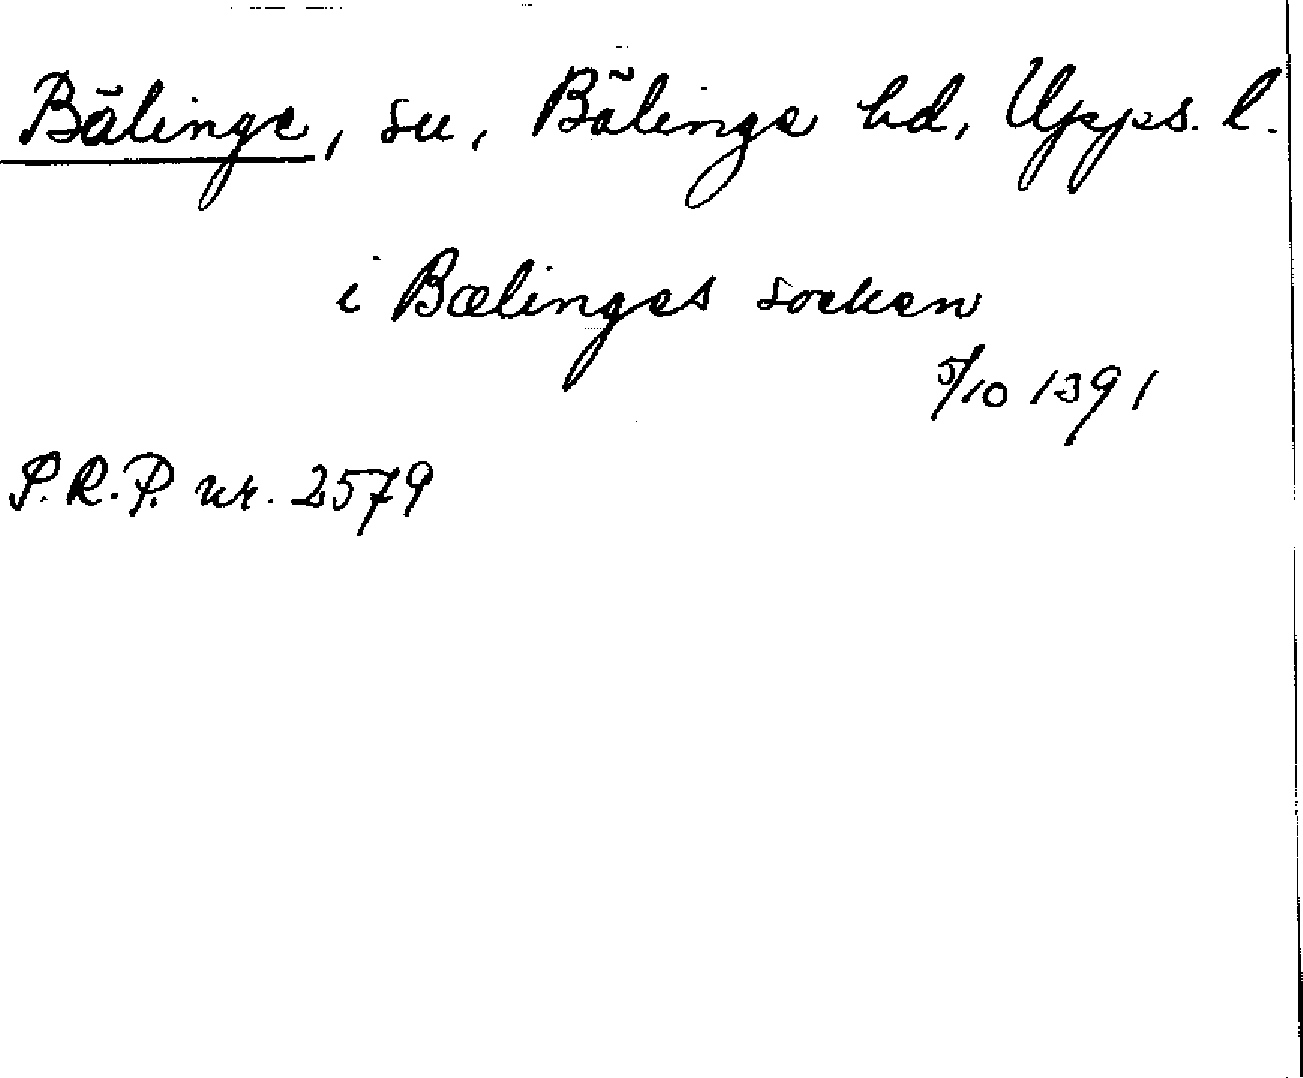 Bälinge, sn, Bälinge hd, Upps. l.
i Bælinges socken
5/10 1391
S.R.P. nr. 2579